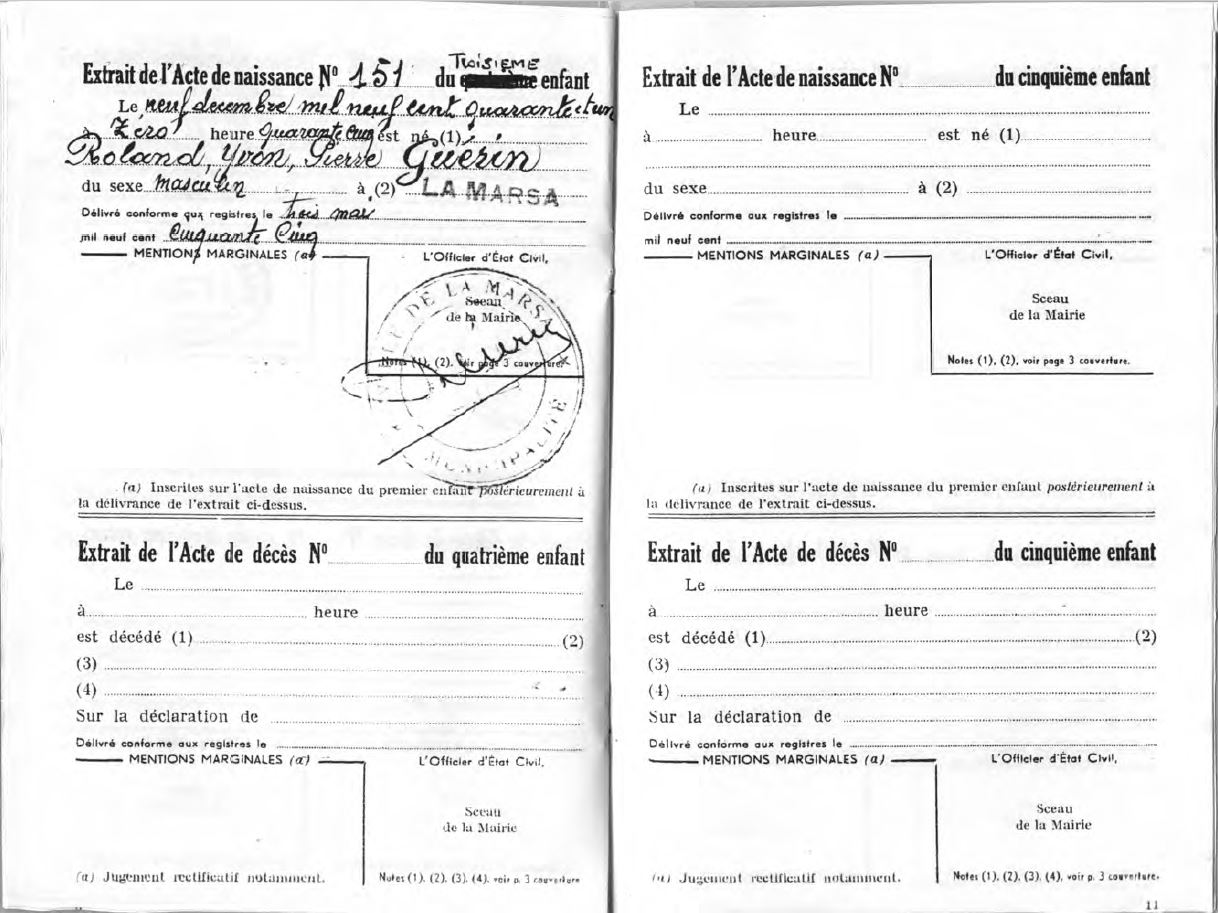 Extrait de l'Acte de naissance Nº 151 du TROISIEME enfant
Le neuf decembre mil neuf cent quarante et un
à Zéro heure quarante cinq est né (1)
Roland, Yvon, Pierre Guérin
du sexe masculin à (2) LA MARSA
Délivré conforme aux registres le trois mai
mil neuf cent Cinquante Cinq
MENTIONS MARGINALES (a)
L'Officier d'État Civil,
Sceau
de la Mairie
Notes (1), (2), voir page 3 couverture.
DE LA MARSA
MUNICIPALITE
(a) Inscrites sur l'acte de naissance du premier enfant postérieurement à
la délivrance de l'extrait ci-dessus.
Extrait de l'Acte de décès Nº du quatrième enfant
Le
à heure
est décédé (1) (2)
(3)
(4)
Sur la déclaration de
Délivré conforme aux registres le
MENTIONS MARGINALES (a)
L'Officier d'État Civil,
Sceau
de la Mairie
(a) Jugement rectificatif notamment.
Notes (1), (2), (3), (4), voir p. 3 couverture
Extrait de l'Acte de naissance Nº du cinquième enfant
Le
à heure est né (1)
du sexe à (2)
Délivré conforme aux registres le
mil neuf cent
MENTIONS MARGINALES (a)
L'Officier d'État Civil,
Sceau
de la Mairie
Notes (1), (2), voir page 3 couverture.
(a) Inscrites sur l'acte de naissance du premier enfant postérieurement à
la délivrance de l'extrait ci-dessus.
Extrait de l'Acte de décès Nº du cinquième enfant
Le
à heure
est décédé (1) (2)
(3)
(4)
Sur la déclaration de
Délivré conforme aux registres le
MENTIONS MARGINALES (a)
L'Officier d'État Civil,
Sceau
de la Mairie
(a) Jugement rectificatif notamment.
Notes (1), (2), (3), (4), voir p. 3 couverture.
11